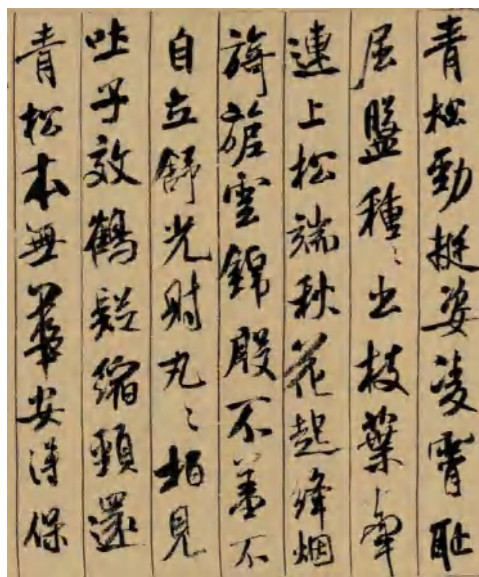 青松勁挺姿凌霄恥
屈盤種〻出枝葉牽
連上松端秋花起絳烟
旖旎雲錦殷不羞不
自立舒光射丸〻柏見
吐子效鶴疑縮頸還
青松本無華安得保